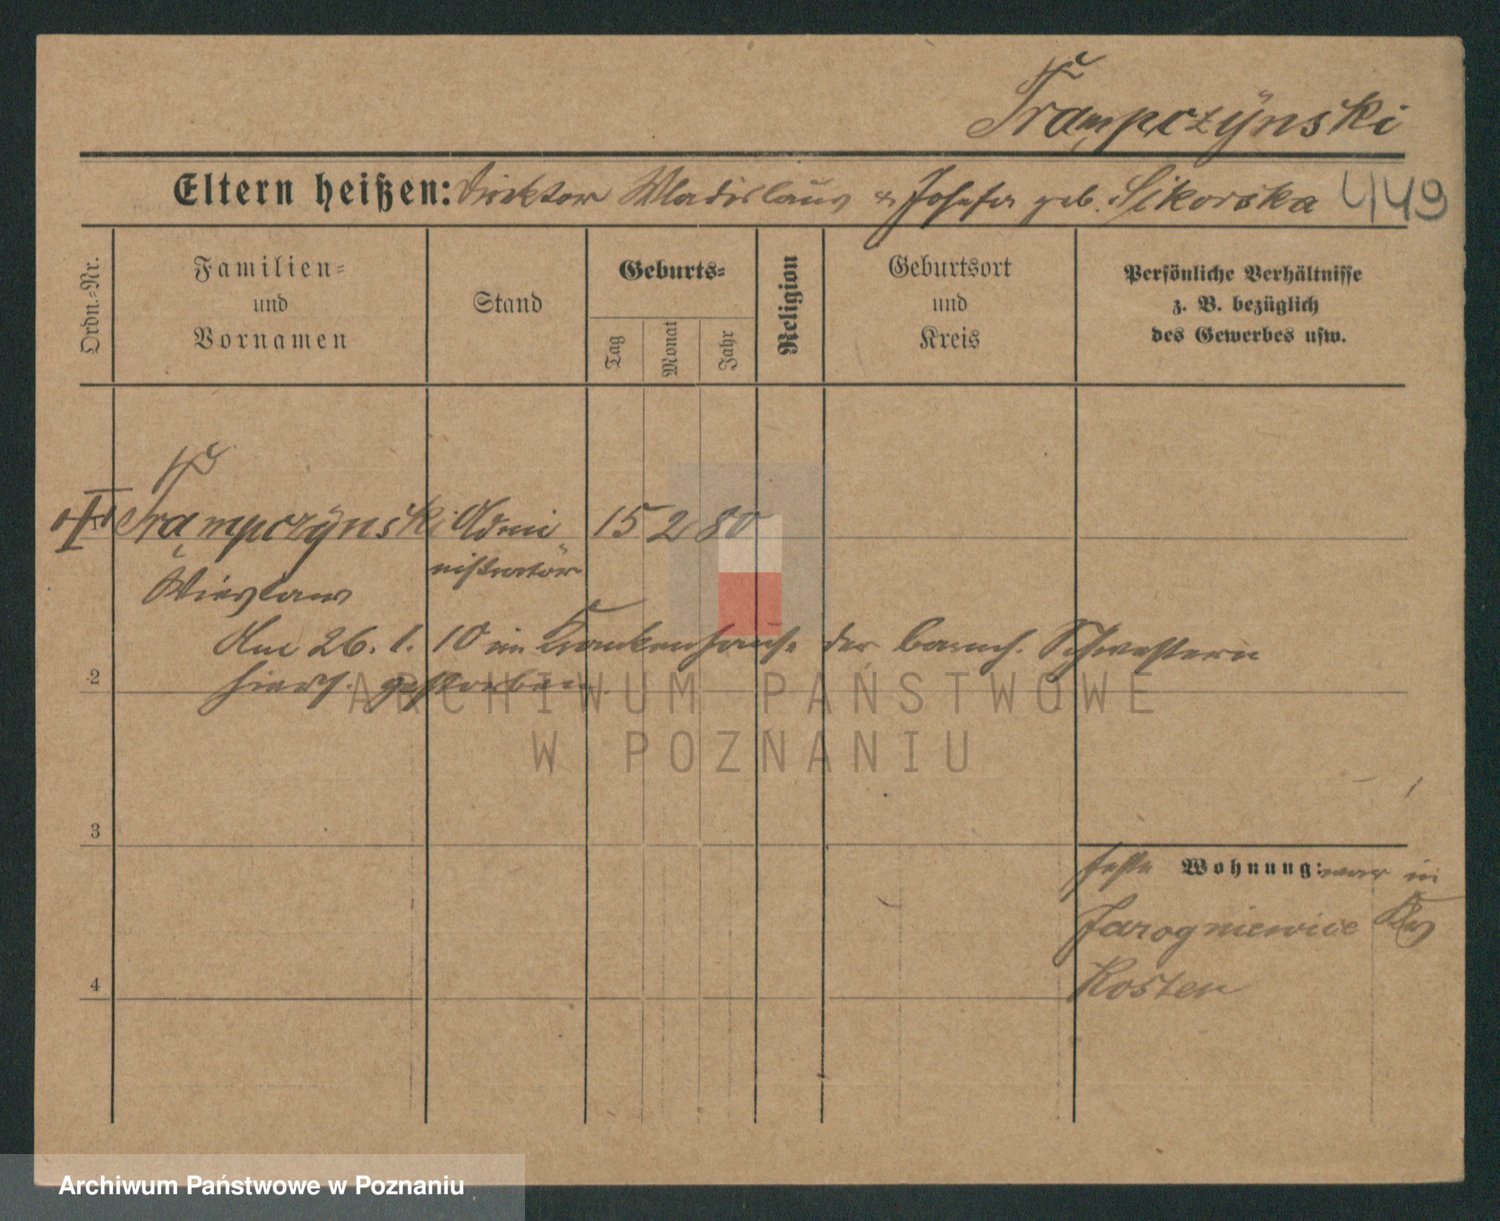 Trąmpczÿnski
Eltern heißen: Direktor Wladislaus & Josefa geb. Sikorska 449
Ordn.=Nr.
Familien=
und
Vornamen
Stand
Geburts=
Tag
Monat
Jahr
Religion
Geburtsort
und
Kreis
Persönliche Verhältnisse
z. B. bezüglich
des Gewerbes usw.
Trąmpczÿnski Admi 15 2 80
nistrator
Wieslaus
Am 26. 1. 10 im Krankenhause der barmh. Schwestern
2 hiers. gestorben.
ARCHIWUM PAŃSTWOWE
W POZNANIU
3
feste Wohnung: war in
Jarogniewice Krs
4 Kosten
Archiwum Państwowe w Poznaniu